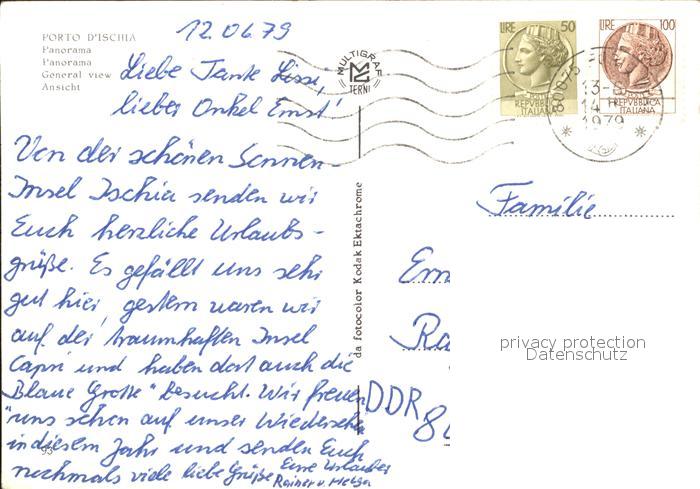 PORTO D'ISCHIA
Panorama
Panorama
General view
Ansicht
12.06.79
Liebe Tante Lissi,
lieber Onkel Ernst!
Von der schönen Sonnen-
Insel Ischia senden wir
Euch herzliche Urlaubs-
grüße. Es gefällt uns sehr
gut hier, gestern waren wir
auf der traumhaften Insel
Capri und haben dort auch die
„Blaue Grotte" besucht. Wir freuen
uns schon auf unser Wiedersehn
in diesem Jahr und senden Euch
nochmals viele liebe Grüße Eure Urlauber
Rainer u. Helga
93
MULTIGRAF
TERNI
da fotocolor Kodak Ektachrome
LIRE 50
REPVBBLICA
ITALIANA
LIRE 100
REPVBBLICA
ITALIANA
80075
13-
14
1979
Familie
Em
Ra
DDR
privacy protection
Datenschutz